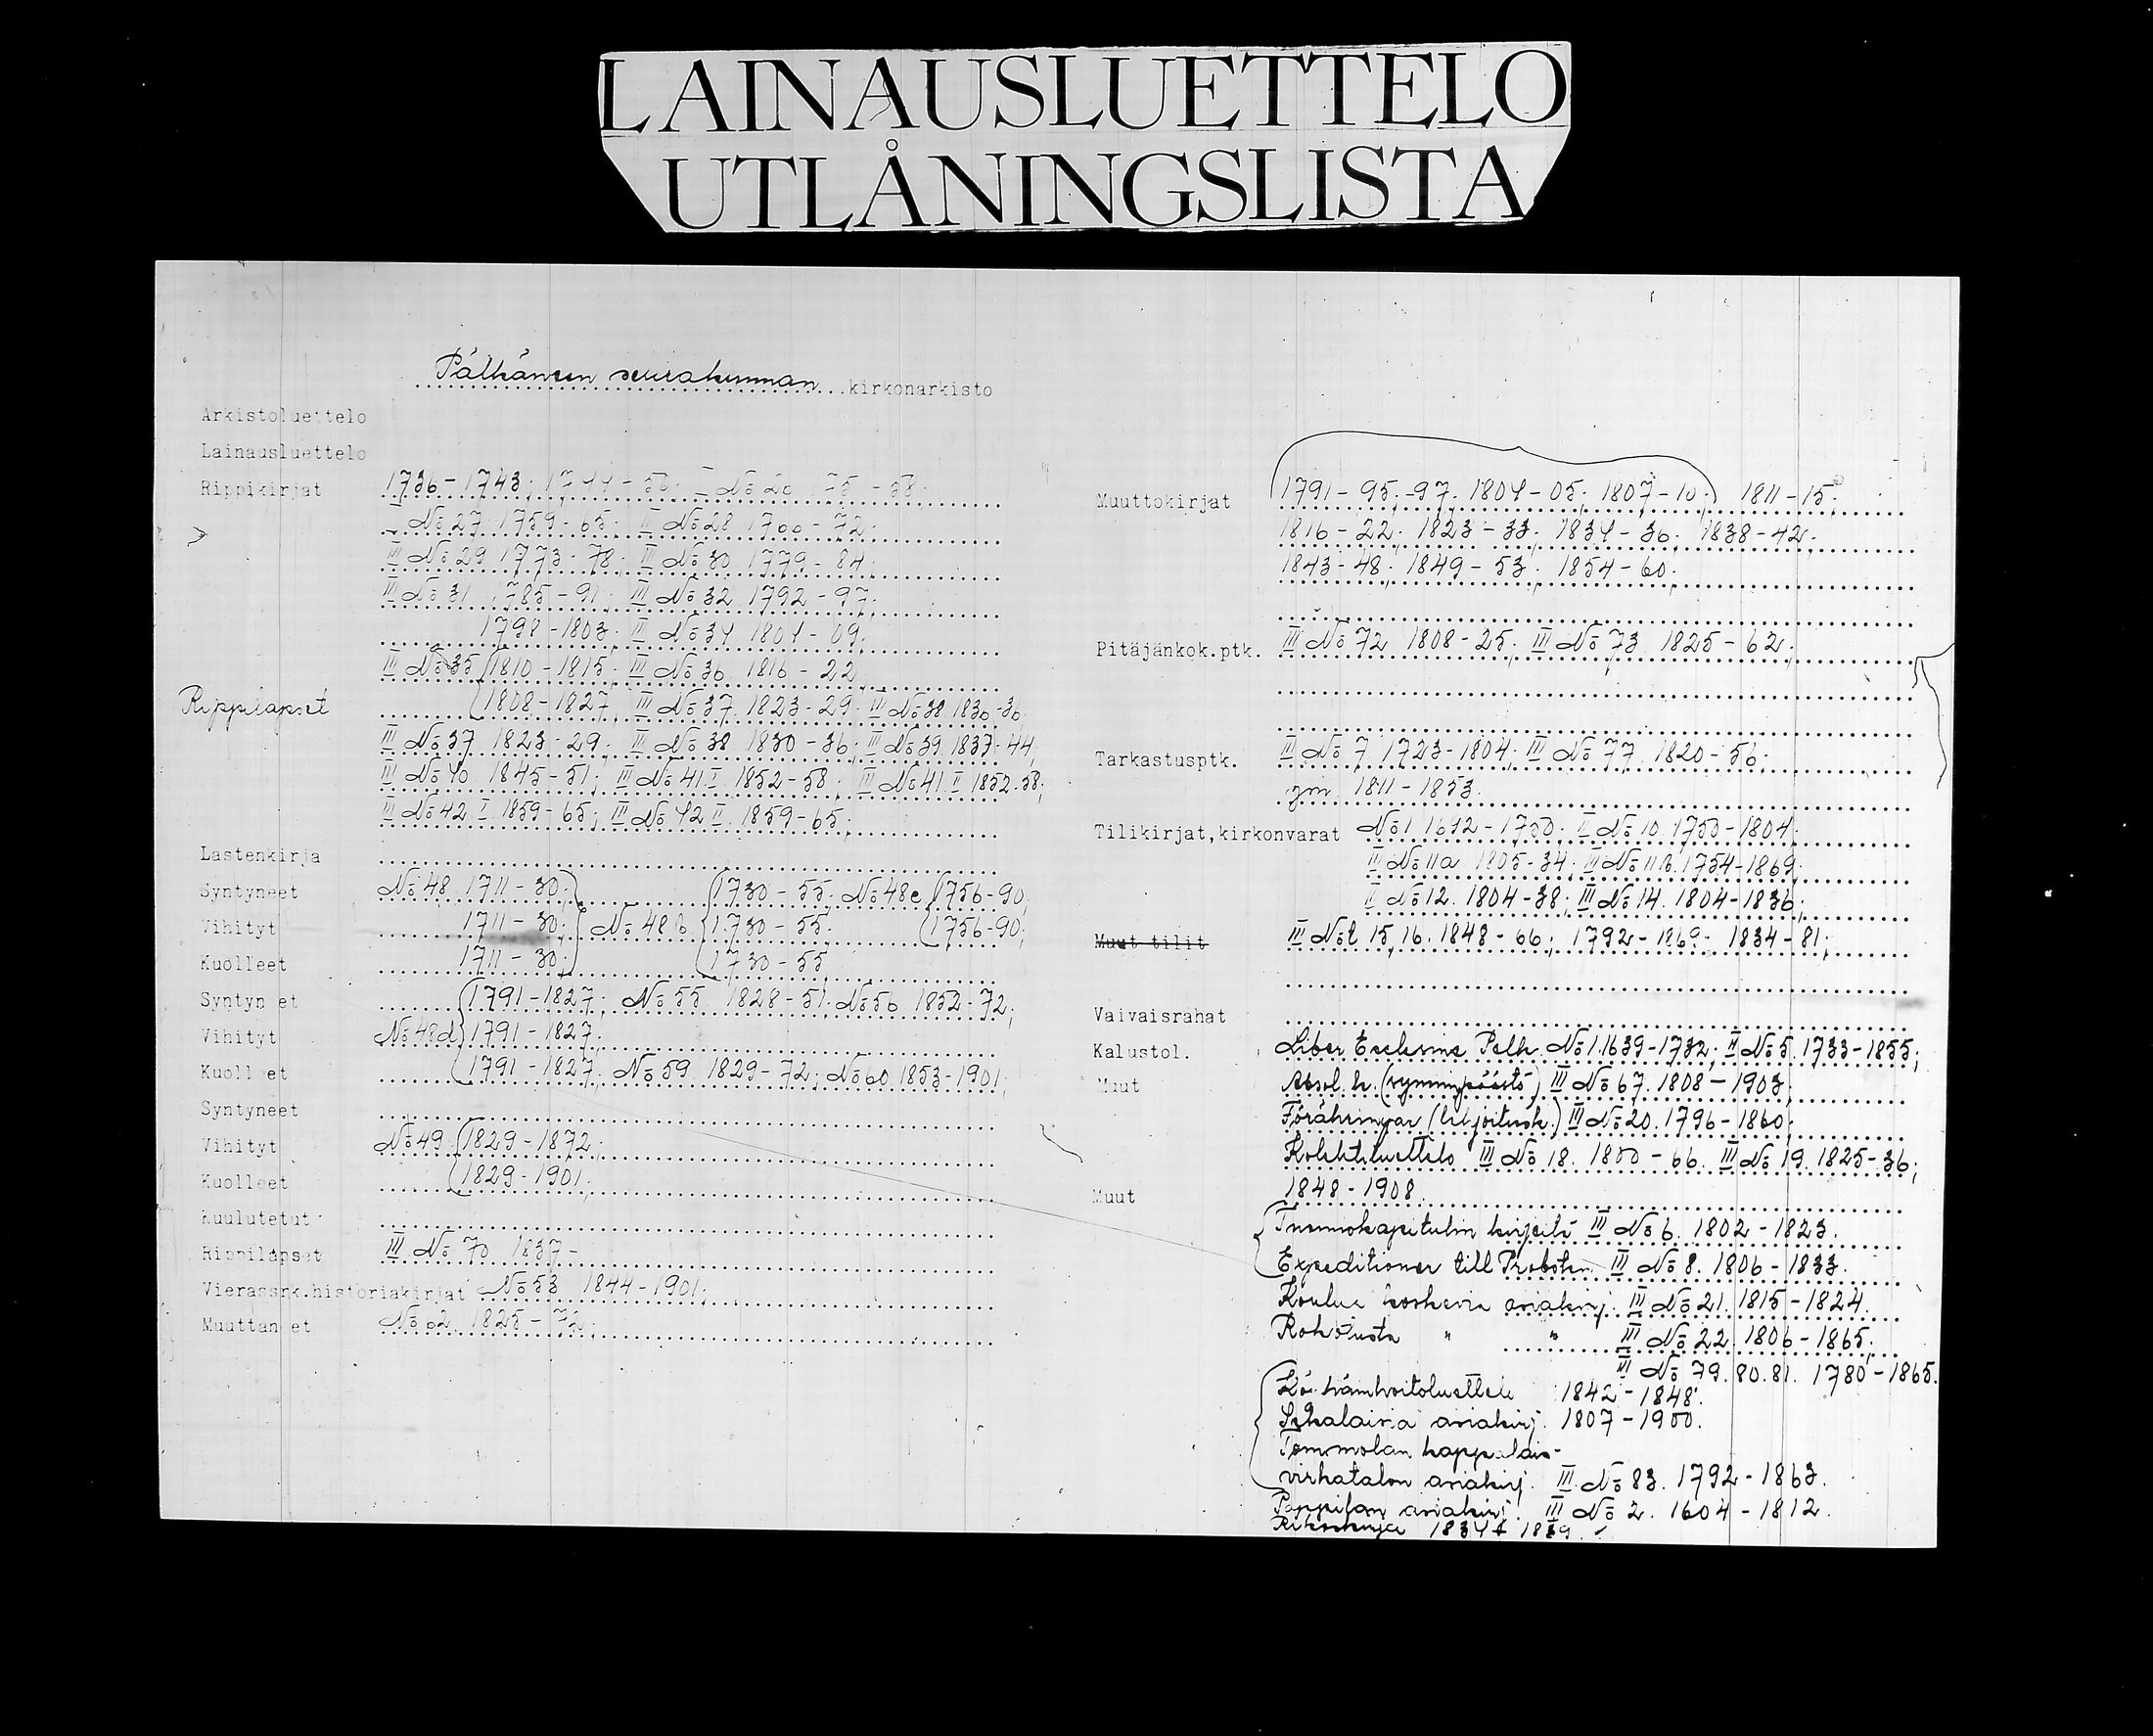 LAINAUSLUETTELO
UTLÅNINGSLISTA
Pälkäneen seurakunnan kirkonarkisto
Arkistoluettelo
Lainausluettelo
Rippikirjat 1736-1743; 1744-50; № 26
№ 27 1759-65; II № 28 1766-72;
III № 29 1773-78; III № 30 1779-84;
III № 31 1785-91; III № 32 1792-97;
1798-1803; III № 34 1804-09;
III № 35 1810-1815; III № 36 1816-22
Rippilapset 1808-1827; III № 37 1823-29; III № 38 1830-36
III № 37 1823-29; III № 38 1830-36; III № 39 1837-44;
III № 40 1845-51; III № 41.I. 1852-58; III № 41.I 1852-58;
III № 42 I 1859-65; III № 42 II 1859-65;
Lastenkirja
Syntyneet № 48 1711-30; 1730-55; № 48c 1756-90;
Vihityt 1711-30; № 48b 1730-55; 1756-90;
Kuolleet 1711-30; 1730-55
Syntyneet 1791-1827; № 55 1828-51; № 56 1852-72;
Vihityt № 48d 1791-1827;
Kuolleet 1791-1827; № 59 1829-72; № 60 1853-1901;
Syntyneet
Vihityt № 49 1829-1872;
Kuolleet 1829-1901;
Kuulutetut
Rippilapset III № 70 1837-
Vierassrk.historiakirjat № 53 1844-1901;
Muuttaneet № 62 1825-72;
Muuttokirjat 1791-95; -97; 1804-05; 1807-10; 1811-15;
1816-22; 1823-33; 1834-36; 1838-42;
1843-48; 1849-53; 1854-60;
Pitäjänkok.ptk. III № 72 1808-25; III № 73 1825-62;
Tarkastusptk. II № 7 1723-1804; III № 77 1820-56;
ym 1811-1853.
Tilikirjat,kirkonvarat № 1 1692-1750; II № 10 1750-1804;
II № 11a 1805-34; II № 11b 1754-1869;
II № 12. 1804-38; III № 14. 1804-1836;
Muut tilit III № 15, 16. 1848-66; 1792-1869; 1834-81;
Vaivaisrahat
Kalustol. Liber Ecclesiae Pelk. № 1.1639-1732; II № 5. 1733-1855;
Muut Absol. k. (synninpäästö) III № 67. 1808-1903;
Föräringar (lahjoitusk.) III № 20. 1796-1860;
Kolehtiluettelo III № 18. 1850-66. III № 19. 1825-36;
Muut 1848-1908.
Tuomiokapitulin kirjeitä III № 6. 1802-1823.
Expeditioner till Probsten III № 8. 1806-1833.
Koulua koskevia asiakirj. III № 21. 1815-1824.
Rokotusta " " III № 22. 1806-1865;
III № 79.80.81. 1780-1865.
1842-1848.
Sekalaisia asiakirj. 1807-1900.
Tommolan kappalais-
virkatalon asiakirj. III № 83. 1792-1863.
Pappilan asiakirj. III № 2. 1604-1812.
Rikoskirja 1834 1839